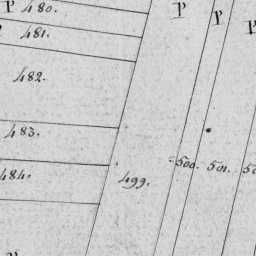 P 480.
P P P
481.
482.
483.
500. 501.
484.
499.